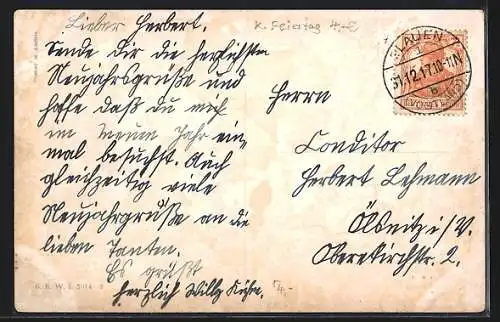 Lieber Herbert.
K. Feiertag 4,-
Sende dir die herzlichsten
Neujahrsgrüße und
hoffe daß du mich
im neuen Jahr ein-
mal besuchst. Auch
gleichzeitig viele
Neujahrgrüße an die
lieben Tanten.
Es grüßt
herzlich Willy Kühn.
PLAUEN
31.12.17.10-11N
b
(VOGTL)
Herrn
Conditor
Herbert Lehmann
Ölsnitz i/V.
Oberekirchstr. 2.